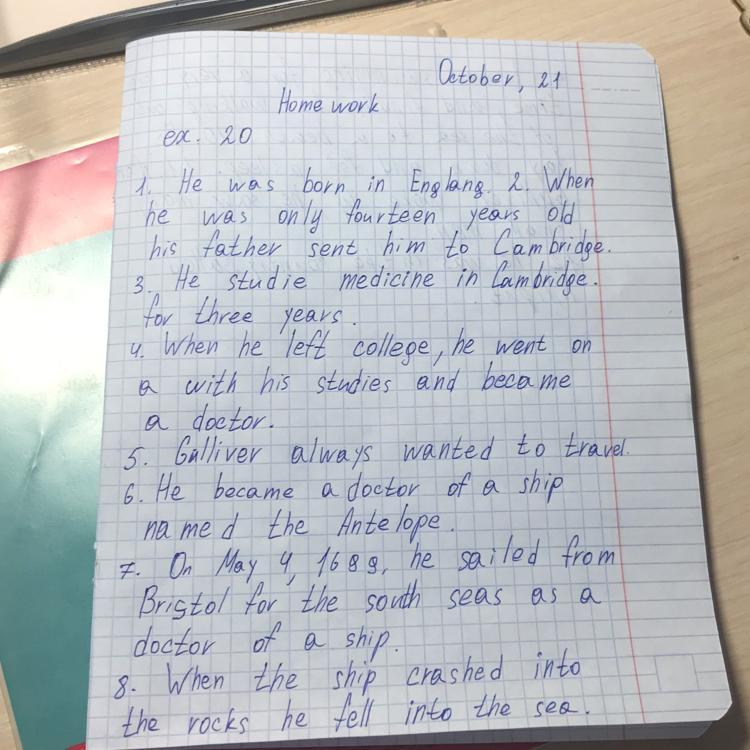 October, 21
Home work
ex. 20
1. He was born in Englang. 2. When
he was only fourteen years old
his father sent him to Cambridge.
3. He studie medicine in Cambridge.
for three years.
4. When he left college, he went on
a with his studies and became
a doctor.
5. Gulliver always wanted to travel.
6. He became a doctor of a ship
named the Antelope.
7. On May 4, 1689, he sailed from
Bristol for the south seas as a
doctor of a ship.
8. When the ship crashed into
the rocks he fell into the sea.